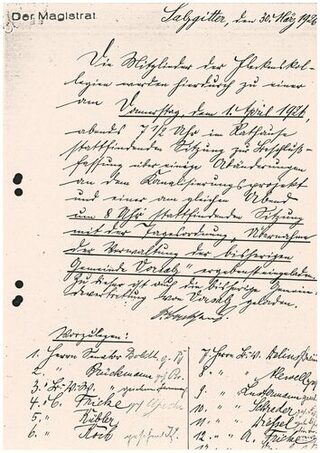 Der Magistrat.
Salzgitter, den 30. März 1926
Die Mitglieder der Fleckenkol-
legien werden hierdurch zu einer
am Donnerstag, den 1. April 1926,
abends 7 1/2 Uhr im Rathause
stattfindenden Sitzung zur Beschluß-
fassung über einige Abänderungen
an dem Kanalisierungsprojekt
und einer am gleichen Abend
um 8 Uhr stattfindenden Sitzung
mit der Tagesordnung „Übernahme
der Verwaltung der bisherigen
Gemeinde Vorsalz" ergebenst eingeladen.
Zu dieser ist auch die bisherige Gemein-
devertretung von Vorsalz geladen.
Vorzulegen:
1. Herrn Senator
2. " Brückmann
3. " Br. V. W.
4. " Br. Fricke
5. " Kibler
6. " Koch
7. Herrn Br. V.
8. " " Klewell
9. " "
10. " " Schrader
11. " "
12. " " A. Fricke